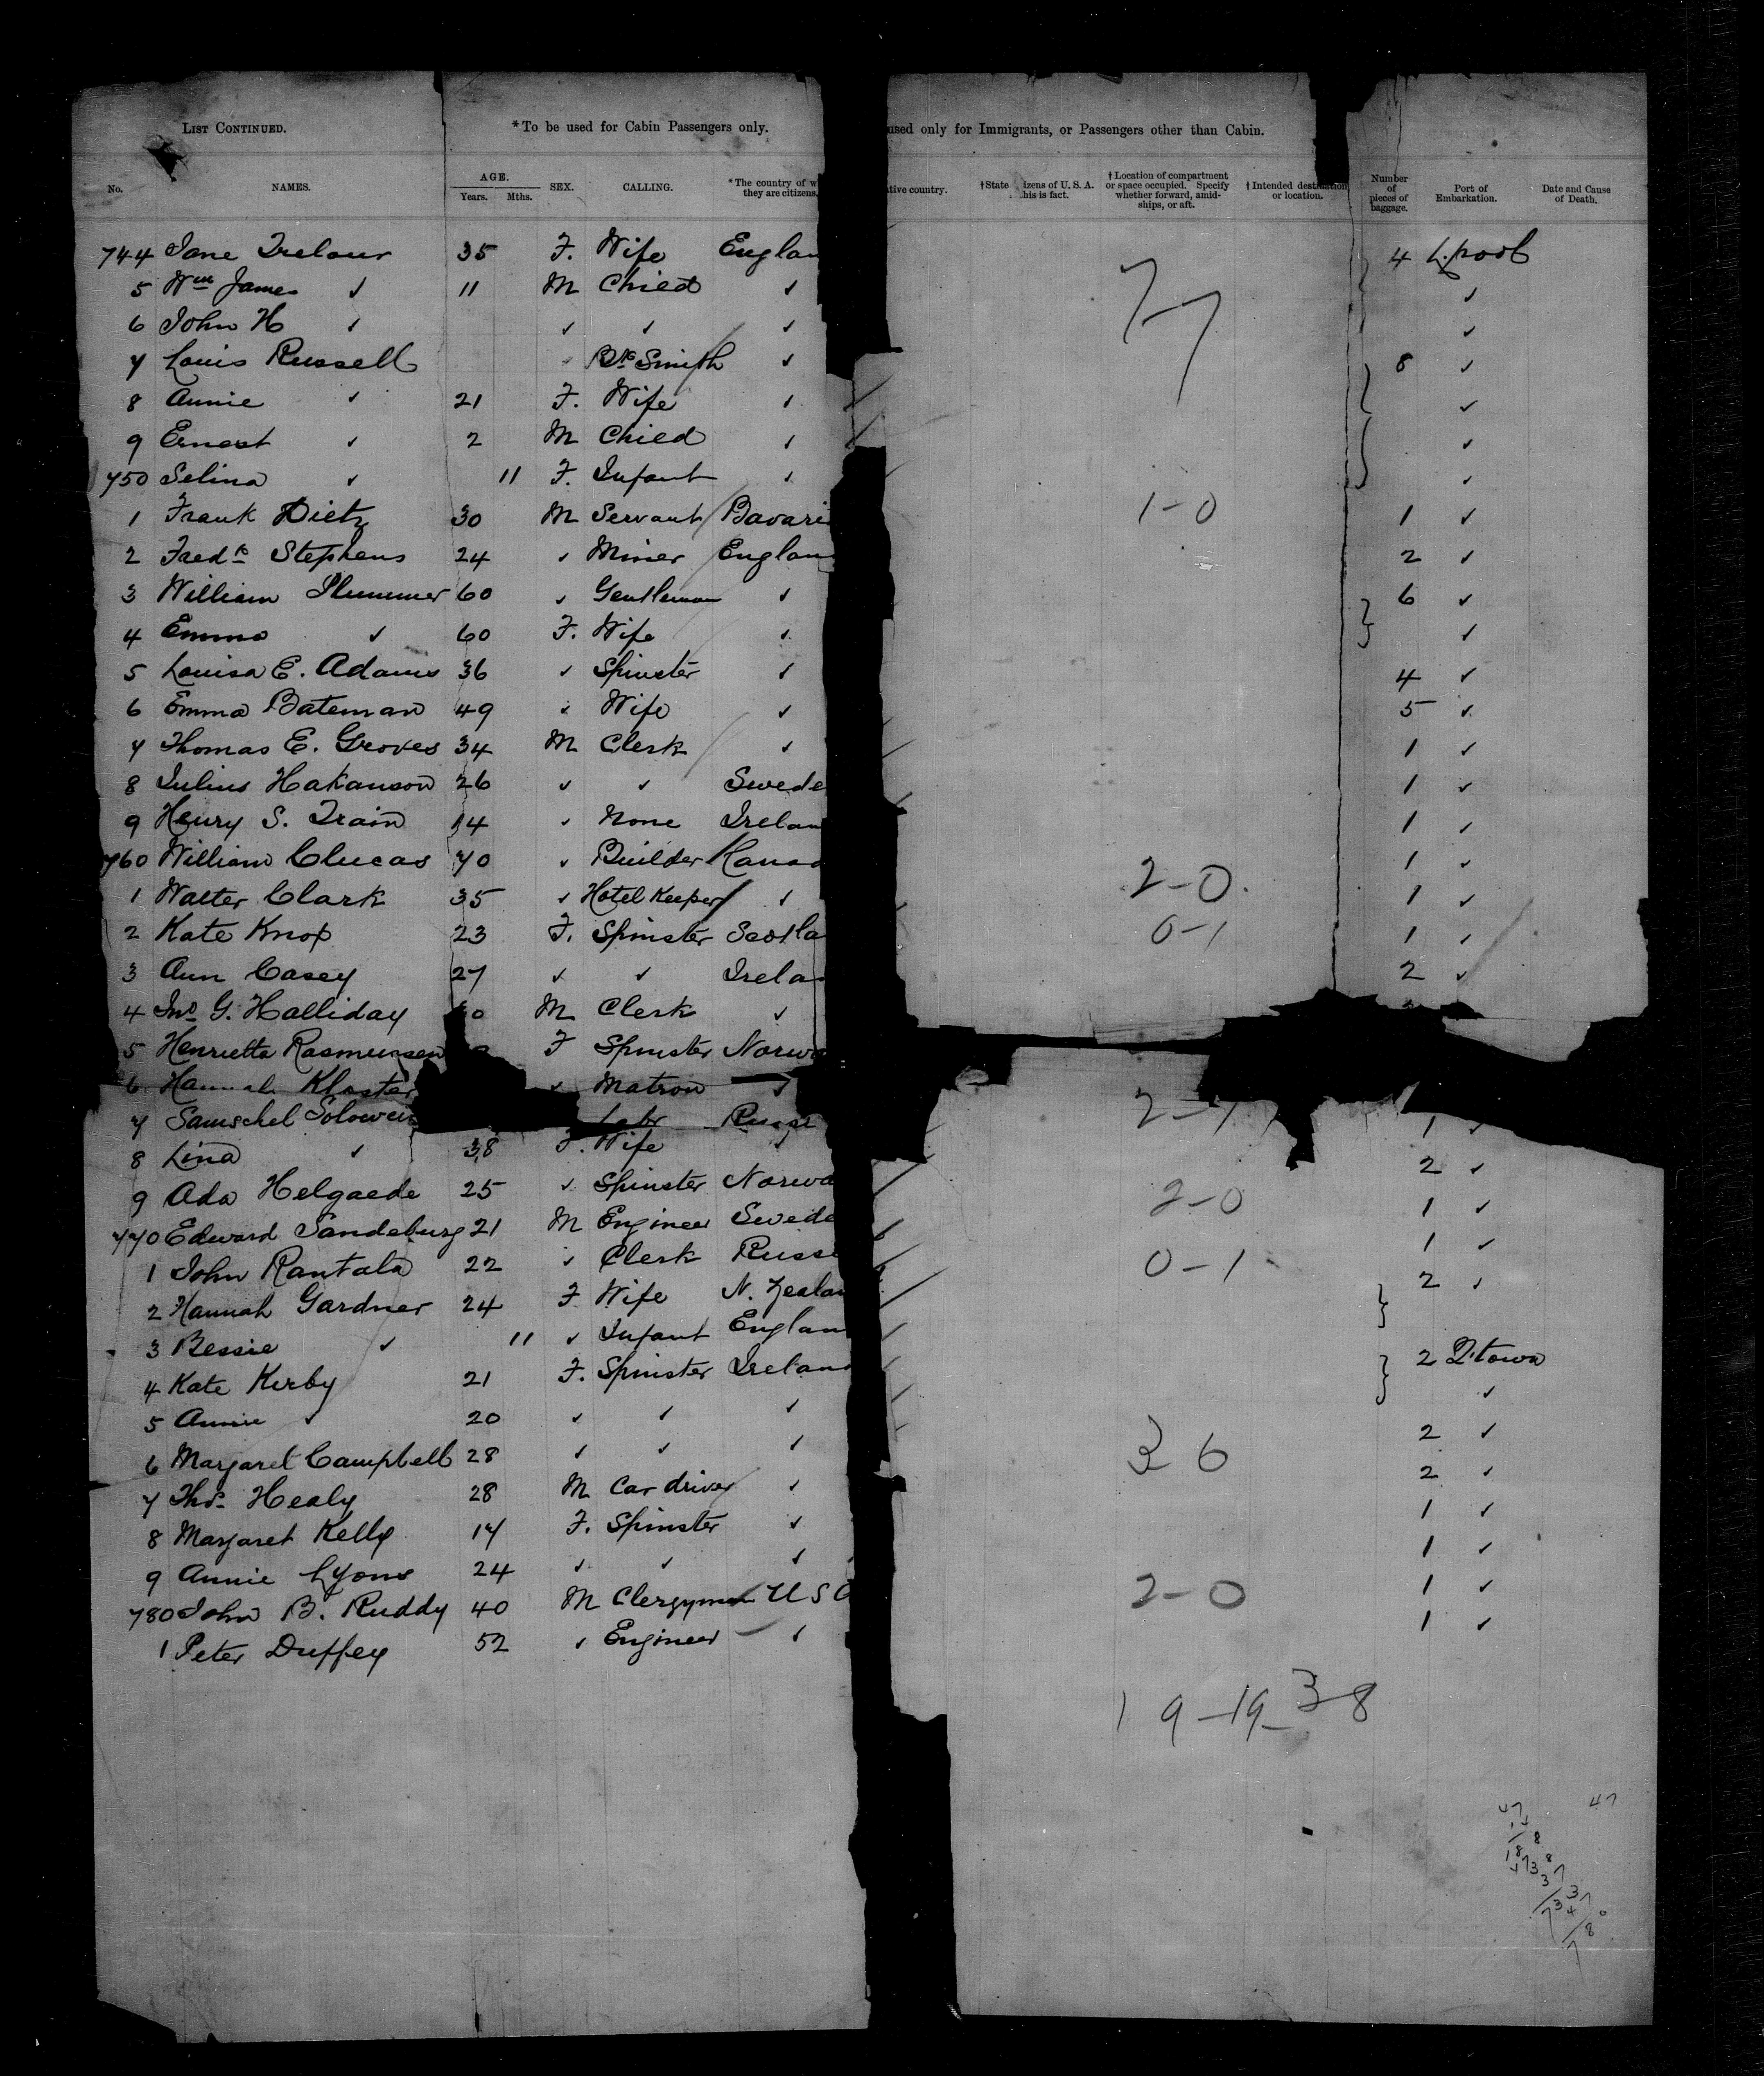 LIST CONTINUED. *To be used for Cabin Passengers only. used only for Immigrants, or Passengers other than Cabin.
No. NAMES. AGE. Years. Mths. SEX. CALLING. *The country of w they are citizens. tive country. †State izens of U.S.A. his is fact. †Location of compartment or space occupied. Specify whether forward, amid-ships, or aft. †Intended destination or location. Number of pieces of baggage. Port of Embarkation. Date and Cause of Death.
744 Jane Treloar 35 F. Wife Englan 4 L.pool
5 Wm James ✓ 11 M Child ✓ ✓
6 John H ✓ ✓ ✓ ✓ ✓
7 Louis Russell Bk Smith ✓ 8 ✓
8 Annie ✓ 21 F. Wife ✓ ✓
9 Ernest ✓ 2 M Child ✓ ✓
750 Selina ✓ 11 F. Infant ✓ ✓
1 Frank Dietz 30 M Servant Bavari 1-0 1 ✓
2 Fredk Stephens 24 ✓ Miner Englan 2 ✓
3 William Plummer 60 ✓ Gentleman ✓ 6 ✓
4 Emma ✓ 60 F. Wife ✓ ✓
5 Louisa E. Adams 36 ✓ Spinster ✓ 4 ✓
6 Emma Bateman 49 ✓ Wife ✓ 5 ✓
7 Thomas E. Groves 34 M Clerk ✓ 1 ✓
8 Julius Hakanson 26 ✓ ✓ Swede 1 ✓
9 Henry S. Train 14 ✓ None Irelan 1 ✓
760 William Clucas 70 ✓ Builder Canad 1 ✓
1 Walter Clark 35 ✓ Hotel Keeper ✓ 2-0. 1 ✓
2 Kate Knox 23 F. Spinster Scotla 0-1 1 ✓
3 Ann Casey 27 ✓ ✓ Irela 2 ✓
4 Jno G. Halliday 0 M Clerk ✓
5 Henrietta Rasmussen F Spinster Norwa
6 Hannah Kloster ✓ Matron ✓
7 Samschel Solowei Labr Russi 2-1 1 ✓
8 Lina ✓ 38 F. Wife ✓ 2 ✓
9 Ada Helgaede 25 ✓ Spinster Norwa 2-0 1 ✓
770 Edward Sandeburg 21 M Engineer Swede 1 ✓
1 John Rantala 22 ✓ Clerk Russi 0-1 2 ✓
2 Hannah Gardner 24 F Wife N. Zealan
3 Bessie ✓ 11 ✓ Infant Englan
4 Kate Kirby 21 F. Spinster Irelan 2 Q.town
5 Annie ✓ 20 ✓ ✓ ✓ ✓
6 Margaret Campbell 28 ✓ ✓ ✓ 3 6 2 ✓
7 Thos. Healy 28 M Car driver ✓ 2 ✓
8 Margaret Kelly 17 F. Spinster ✓ 1 ✓
9 Annie Lyons 24 ✓ ✓ ✓ 1 ✓
780 John B. Ruddy 40 M Clergyman U S A 2-0 1 ✓
1 Peter Duffey 52 ✓ Engineer ✓ 1 ✓
19-19 38
47